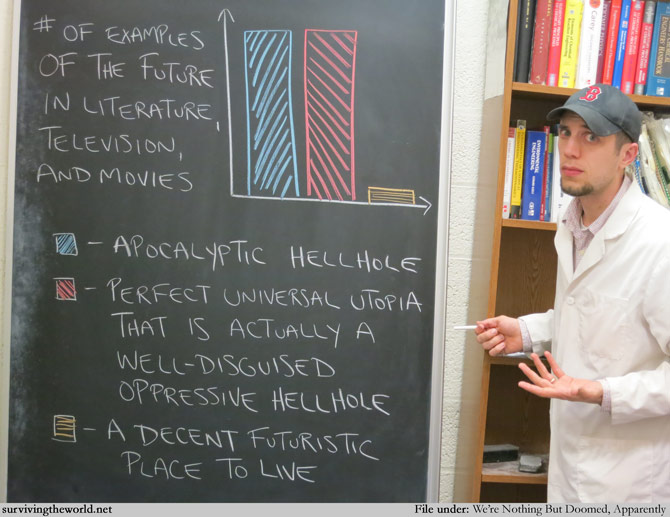 # OF EXAMPLES
OF THE FUTURE
IN LITERATURE,
TELEVISION,
AND MOVIES
- APOCALYPTIC HELLHOLE
- PERFECT UNIVERSAL UTOPIA
THAT IS ACTUALLY A
WELL-DISGUISED
OPPRESSIVE HELLHOLE
- A DECENT FUTURISTIC
PLACE TO LIVE
B
Carey
ENVIRONMENTAL
ENGINEERING
survivingtheworld.net
File under: We're Nothing But Doomed, Apparently